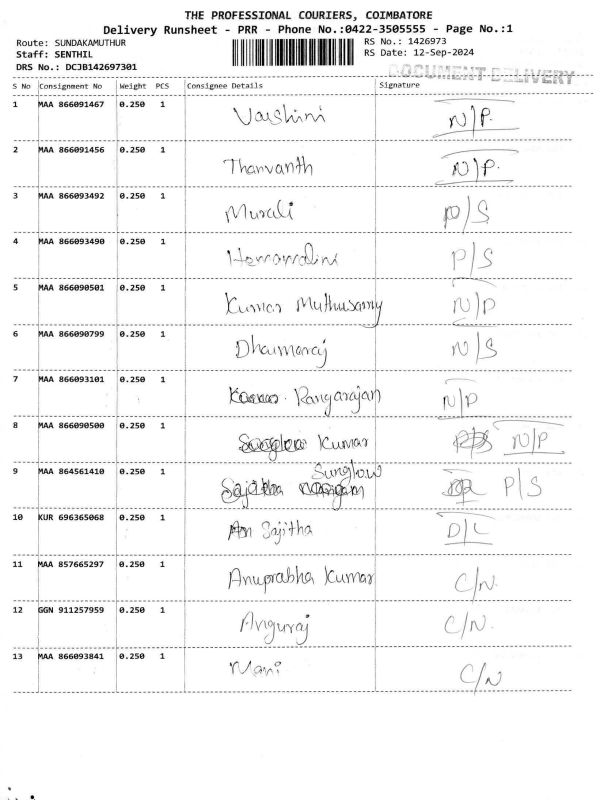 THE PROFESSIONAL COURIERS, COIMBATORE
Delivery Runsheet - PRR - Phone No.:0422-3505555 - Page No.:1
Route: SUNDAKAMUTHUR RS No.: 1426973
Staff: SENTHIL RS Date: 12-Sep-2024
DRS No.: DCJB142697301 DOCUMENT DELIVERY
S No Consignment No Weight PCS Consignee Details Signature
1 MAA 866091467 0.250 1 Varshini N/P.
2 MAA 866091456 0.250 1 Thanvanth N/P.
3 MAA 866093492 0.250 1 Murali /S
4 MAA 866093490 0.250 1 P/S
5 MAA 866090501 0.250 1 Kumar Muthusamy N/P
6 MAA 866090799 0.250 1 Dharmaraj N/S
7 MAA 866093101 0.250 1 Rangarajan N/P
8 MAA 866090500 0.250 1 Kumar N/P
Sunglow
9 MAA 864561410 0.250 1 P/S
10 KUR 696365068 0.250 1 Sajitha D/L
11 MAA 857665297 0.250 1 Anuprabha Kumar C/N.
12 GGN 911257959 0.250 1 Anguraj C/N.
13 MAA 866093841 0.250 1 Mani C/N